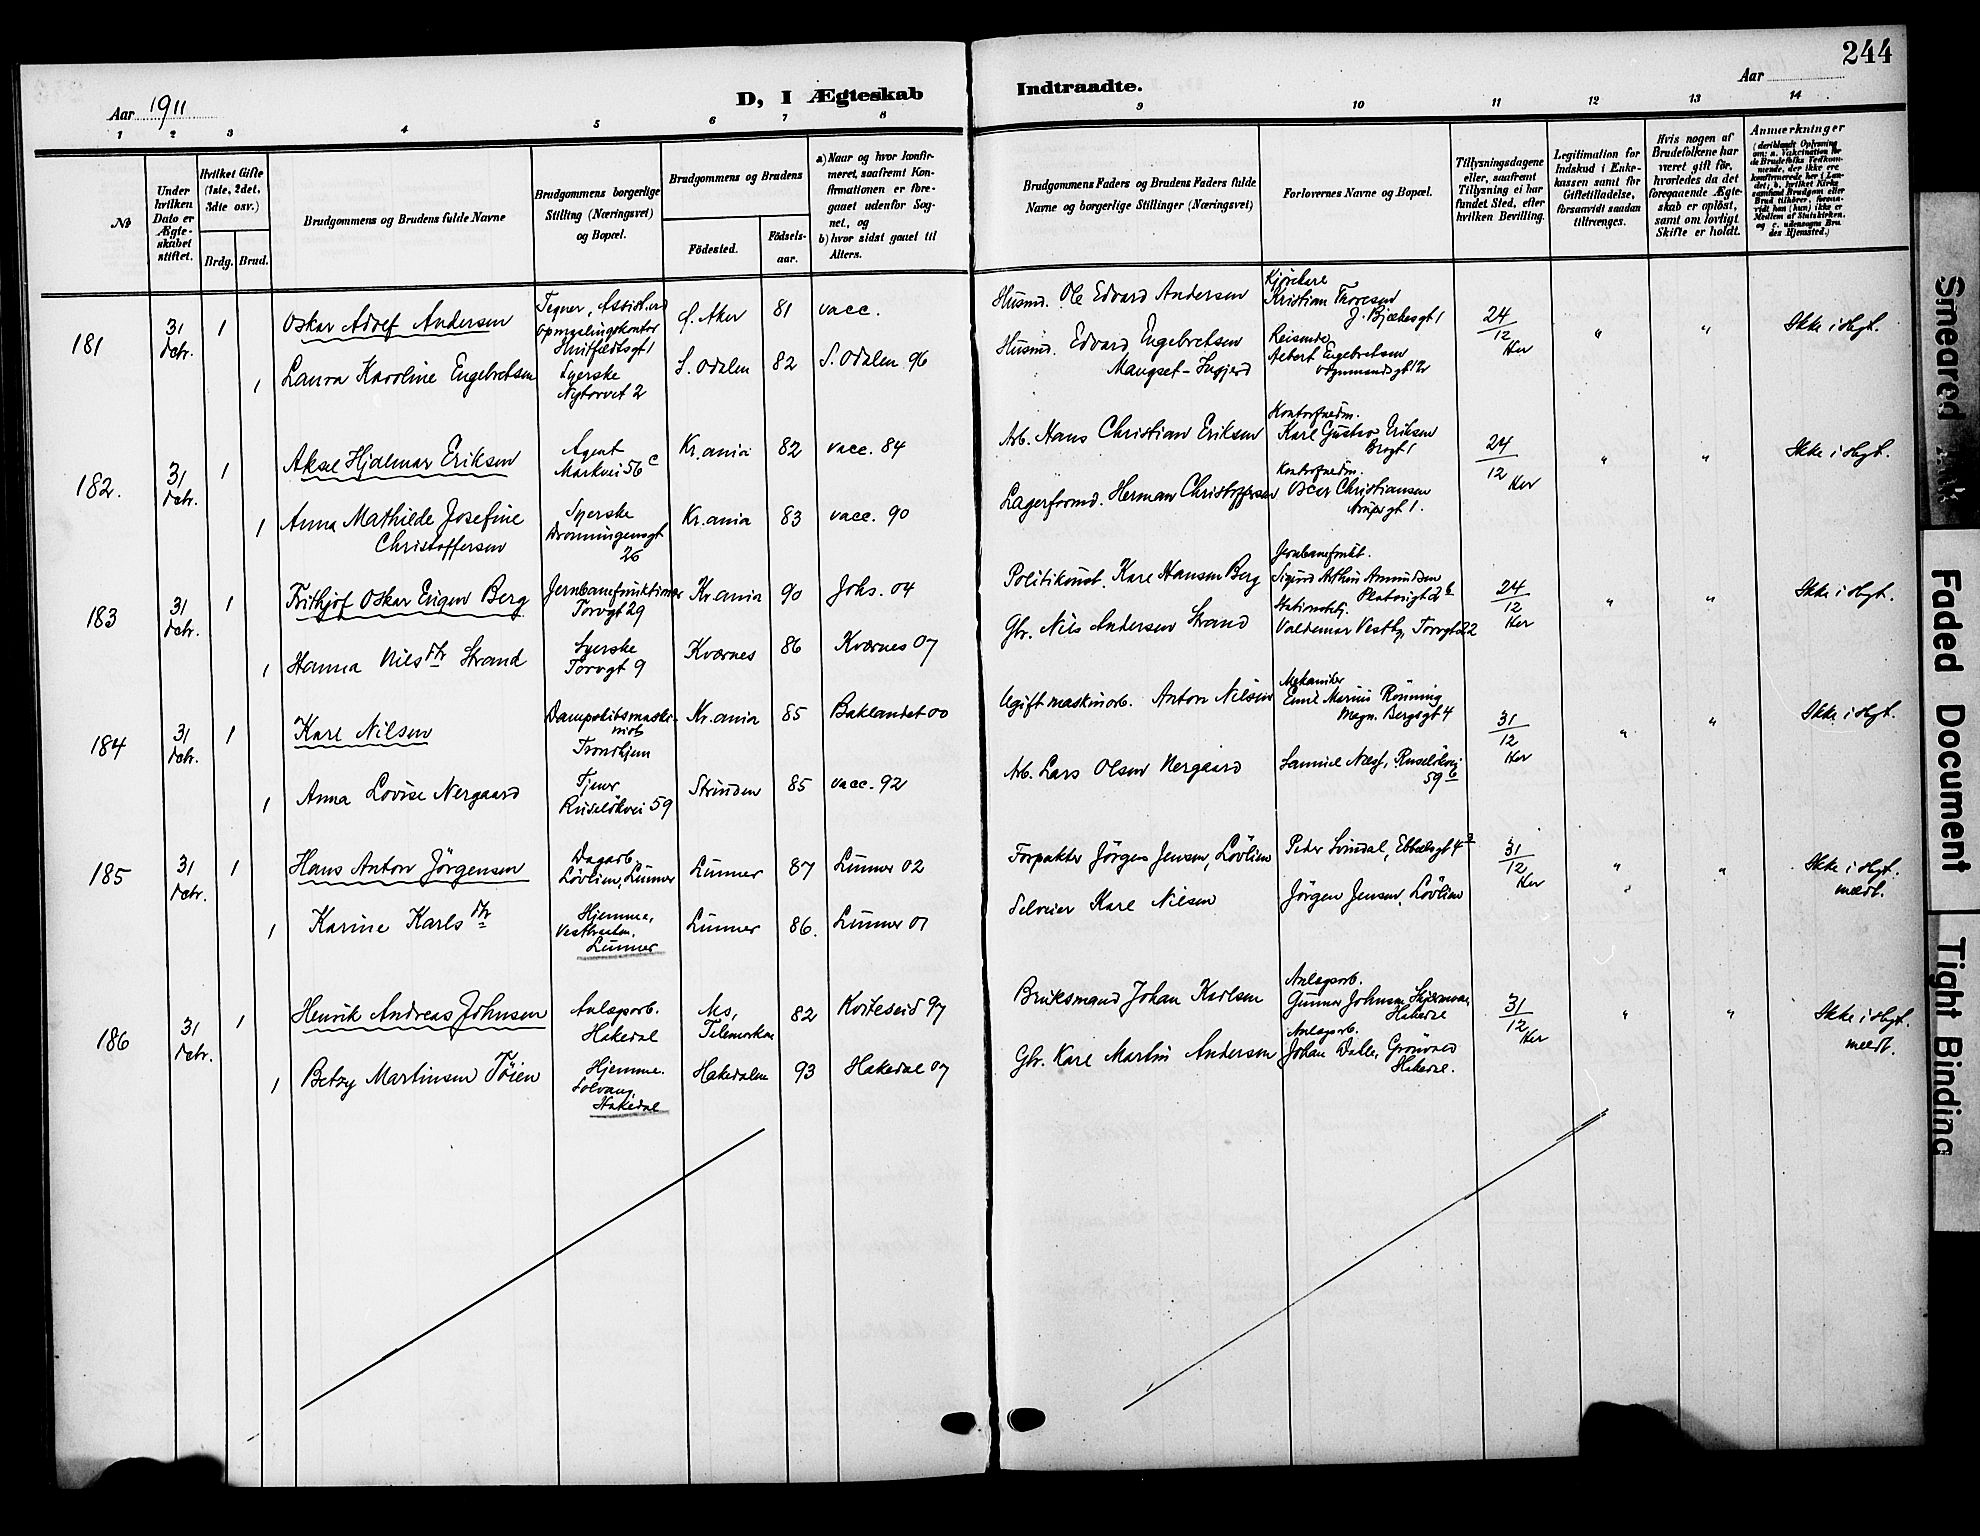 244
Aar 1911
D, I Ægteskab
Indtraadte.
Aar
1 2 3 4 5 6 7 8
9 10 11 12 13 14
No
Under hvilken Dato er Ægteskabet stiftet.
Hvilket Gifte (1ste, 2det, 3die osv.)
Brdg. Brud.
Brudgommens og Brudens fulde Navne
Brudgommens borgerlige Stilling (Næringsvei) og Bopæl.
Brudgommens og Brudens
Födested.
Födselsaar.
a) Naar og hvor konfirmeret, saafremt Konfirmationen er foregaaet udenfor Sognet, og
b) hvor sidst gaaet til Alters.
Brudgommens Faders og Brudens Faders fulde Navne og borgerlige Stillinger (Næringsvei)
Forlovernes Navne og Bopæl.
Tillysningsdagene eller, saafremt Tillysning ei har fundet Sted, efter hvilken Bevilling.
Legitimation for Indskud i Enkekassen samt for Giftetilladelse, forsaavidt saadan tiltrænges.
Hvis nogen af Brudefolkene har været gift för, hvorledes da det foregaaende Ægteskab er oplöst, samt om lovligt Skifte er holdt.
Anmærkninger
181 31 Dcbr. 1 Oskar Adolf Andersen
Tegner, Assist. ved Opmaalingskontor Huitfeldtsgt 1
Ö. Aker 81 vacc.
Husmd. Ole Edvard Andersen
Kristian Thoresen
24/12 Her " " Ikke i slgt.
1 Laura Karoline Engebretsen
Syerske Nytorvet 2
S. Odalen 82 S. Odalen 96
Husmd. Edvard Engebretsen
Reisende, Albert Engebretsen
182. 31 Dcbr. 1 Aksel Hjalmar Eriksen
Agent Markvei 56 c
Kr.ania 82 vacc. 84
Arb. Hans Christian Eriksen
Kontorfuldm. Karl Gustav Eriksen Brogt 1
24/12 Her " " Ikke i slgt.
1 Anna Mathilde Josefine Christoffersen
Syerske Dronningensgt 26
Kr.ania 83 vacc. 90
Lagerformd. Herman Christoffersen
Kontorfuldm. Oscar Christiansen
183 31 Dcbr. 1 Frithjof Oskar Eugen Berg
Jernbanefunktionær Torvgt 29
Kr.ania 90 Johs. 04
Politikonst. Karl Hansen Berg
Jernbanefunkt. Sigurd Arthur Amundsen
24/12 Her " " Ikke i slgt.
1 Hanna Nilsdtr Strand
Syerske Torvgt 9
Kværnes 86 Kværnes 07
Gbr. Nils Andersen Strand
Valdemar Vestby, Torvgt 22
184 31 Dcbr. 1 Karl Nilsen
Dampskibsmaskinist Trondhjem
Kr.ania 85 Baklandet 00
Ugift maskinarb. Anton Nilsen
Mekaniker Emil Marius Rönning Magn. Bergsgt 4
31/12 Her " " Ikke i slgt.
1 Anna Lovise Nergaard
Tjener Ruselökvei 59
Strinden 85 vacc. 92
Arb. Lars Olsen Nergaard
Samuel Næss, Ruselökvei 59 b
185 31 Dcbr. 1 Hans Anton Jörgensen
Dagarb. Lövlien, Lunner
Lunner 87 Lunner 02
Forpakter Jörgen Jensen, Lövlien
Peder Svindal, Ebbelsgt 4
31/12 Her " " Ikke i slgt. meldt.
1 Karine Karlsdtr
Hjemme, Lunner
Lunner 86. Lunner 01
Selveier Karl Nilsen
Jörgen Jensen, Lövlien
186 31 Dcbr. 1 Henrik Andreas Johnsen
Anlægsarb. Hakedal
Telemarken 82 Kviteseid 97
Bruksmand Johan Karlsen
Anlægsarb. Gunnar Johnsen Hakedal
31/12 Her " " Ikke i slgt. meldt.
1 Betzy Martinsen Töien
Hjemme. Solvang, Hakedal
Hakedalen 93 Hakedal 07
Gbr. Karl Martin Andersen
Anlægsarb. Johan Dalle, Grönvold Hakedal.
Smeared Ink
Faded Document
Tight Binding